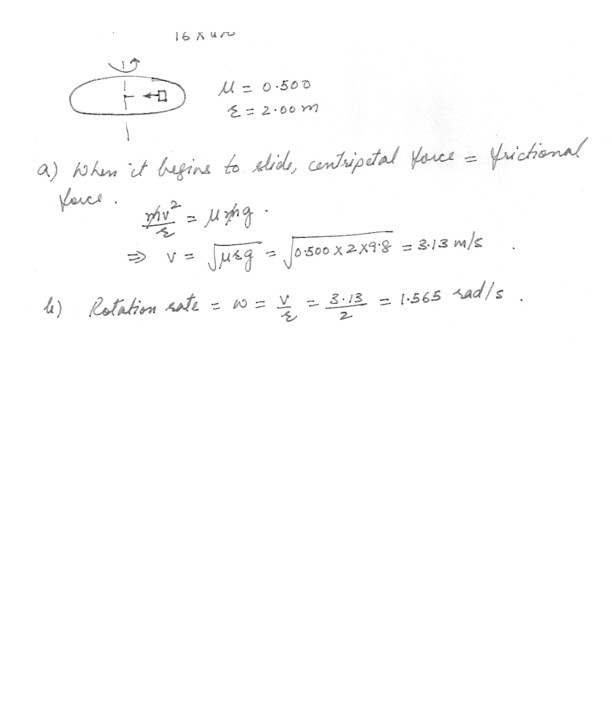 μ = 0.500
r = 2.00 m
a) When it begins to slide, centripetal force = frictional
force.
mv²/r = μmg.
⇒ v = √μrg = √0.500 × 2 × 9.8 = 3.13 m/s.
b) Rotation rate = ω = v/r = 3.13/2 = 1.565 rad/s.